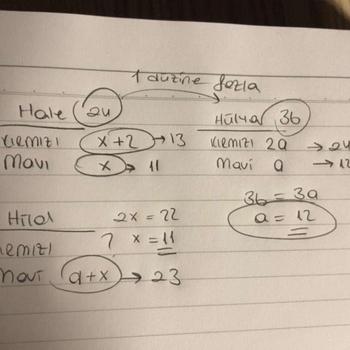 1 düzine fazla
Hale 24 Hülya 36
KIRMIZI x+2 → 13 KIRMIZI 2a → 24
Mavi x → 11 Mavi a → 12
36 = 3a
Hilal 2x = 22 a = 12
KIRMIZI ? x = 11
Mavi a+x → 23